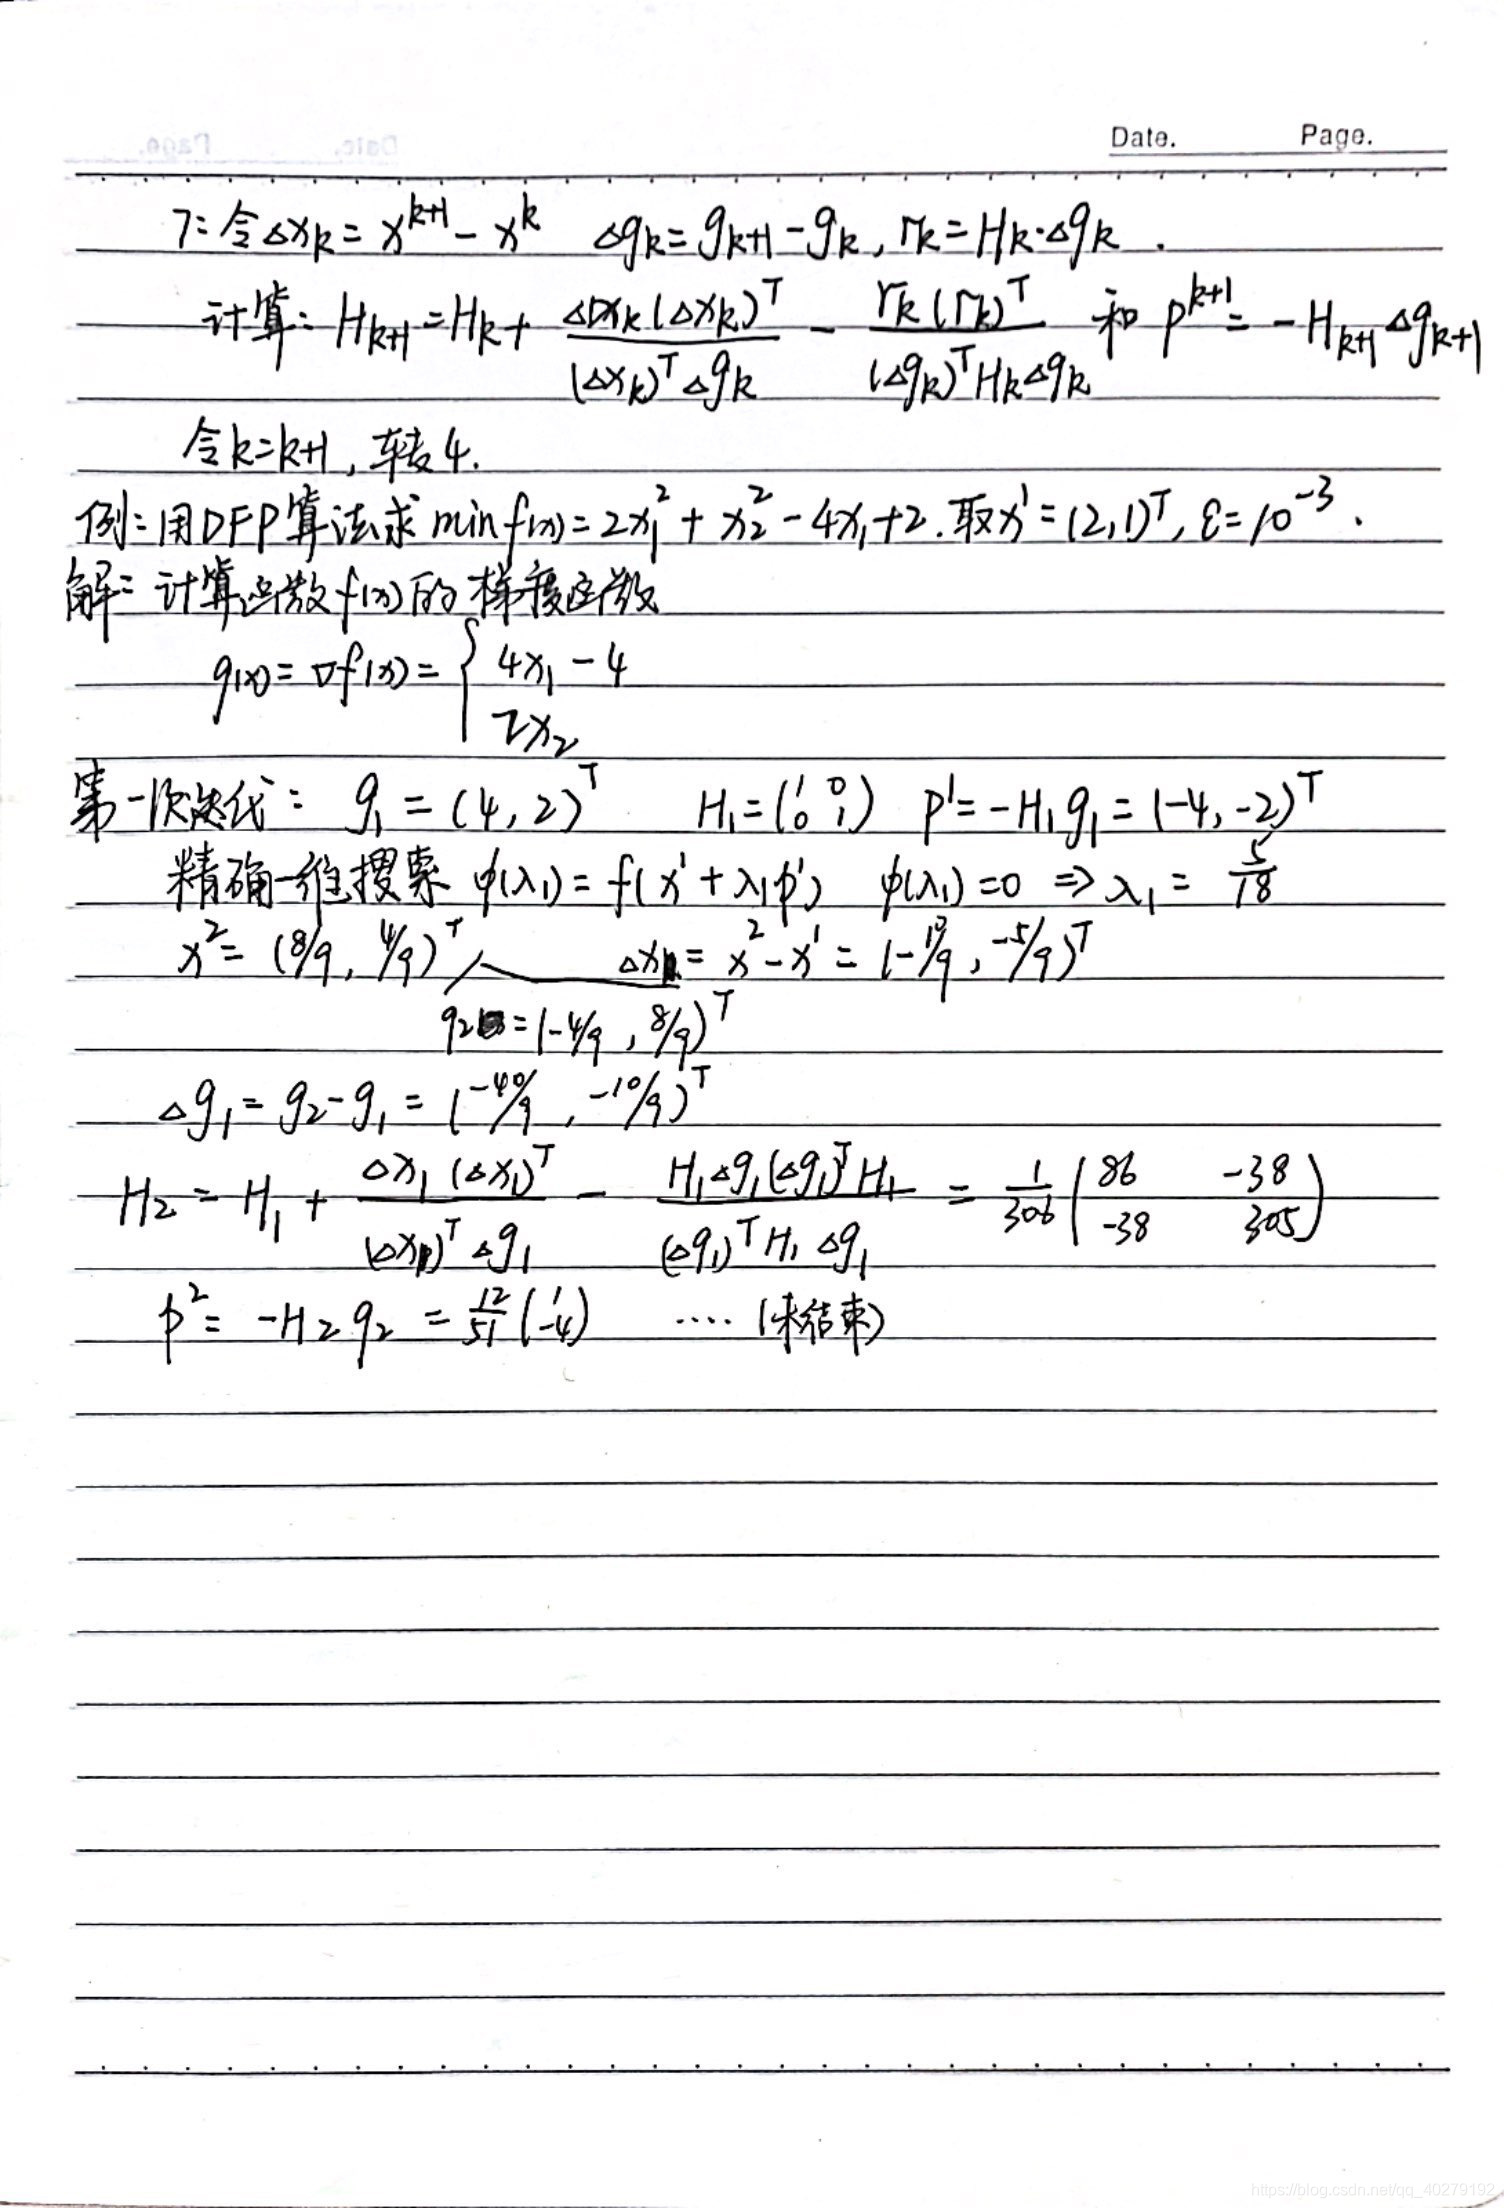 Date. Page.
7: 令△xₖ = xᵏ⁺¹ - xᵏ △gₖ = gₖ₊₁ - gₖ, rₖ = Hₖ·△gₖ.
计算: Hₖ₊₁ = Hₖ + △xₖ(△xₖ)ᵀ / (△xₖ)ᵀ△gₖ - rₖ(rₖ)ᵀ / (△gₖ)ᵀHₖ△gₖ 和 pᵏ⁺¹ = -Hₖ₊₁△gₖ₊₁
令k=k+1, 转4.
例: 用DFP算法求 min f(x) = 2x₁² + x₂² - 4x₁ + 2. 取x¹ = (2,1)ᵀ, ε = 10⁻³.
解: 计算函数f(x)的梯度函数
g(x) = ∇f(x) = { 4x₁ - 4
2x₂
第一次迭代: g₁ = (4, 2)ᵀ H₁ = (1 0 0 1) p¹ = -H₁g₁ = (-4, -2)ᵀ
精确一维搜索 φ(λ₁) = f(x¹ + λ₁p¹) φ(λ₁) = 0 ⇒ λ₁ = 5/18
x² = (8/9, 4/9)ᵀ △x₁ = x² - x¹ = (-10/9, -5/9)ᵀ
g₂ = (-4/9, 8/9)ᵀ
△g₁ = g₂ - g₁ = (-40/9, -10/9)ᵀ
H₂ = H₁ + △x₁(△x₁)ᵀ / (△x₁)ᵀ△g₁ - H₁△g₁(△g₁)ᵀH₁ / (△g₁)ᵀH₁△g₁ = 1/306 (86 -38 -38 305)
p² = -H₂g₂ = 12/51 (1 -4) ···· (未结束)
https://blog.csdn.net/qq_40279192